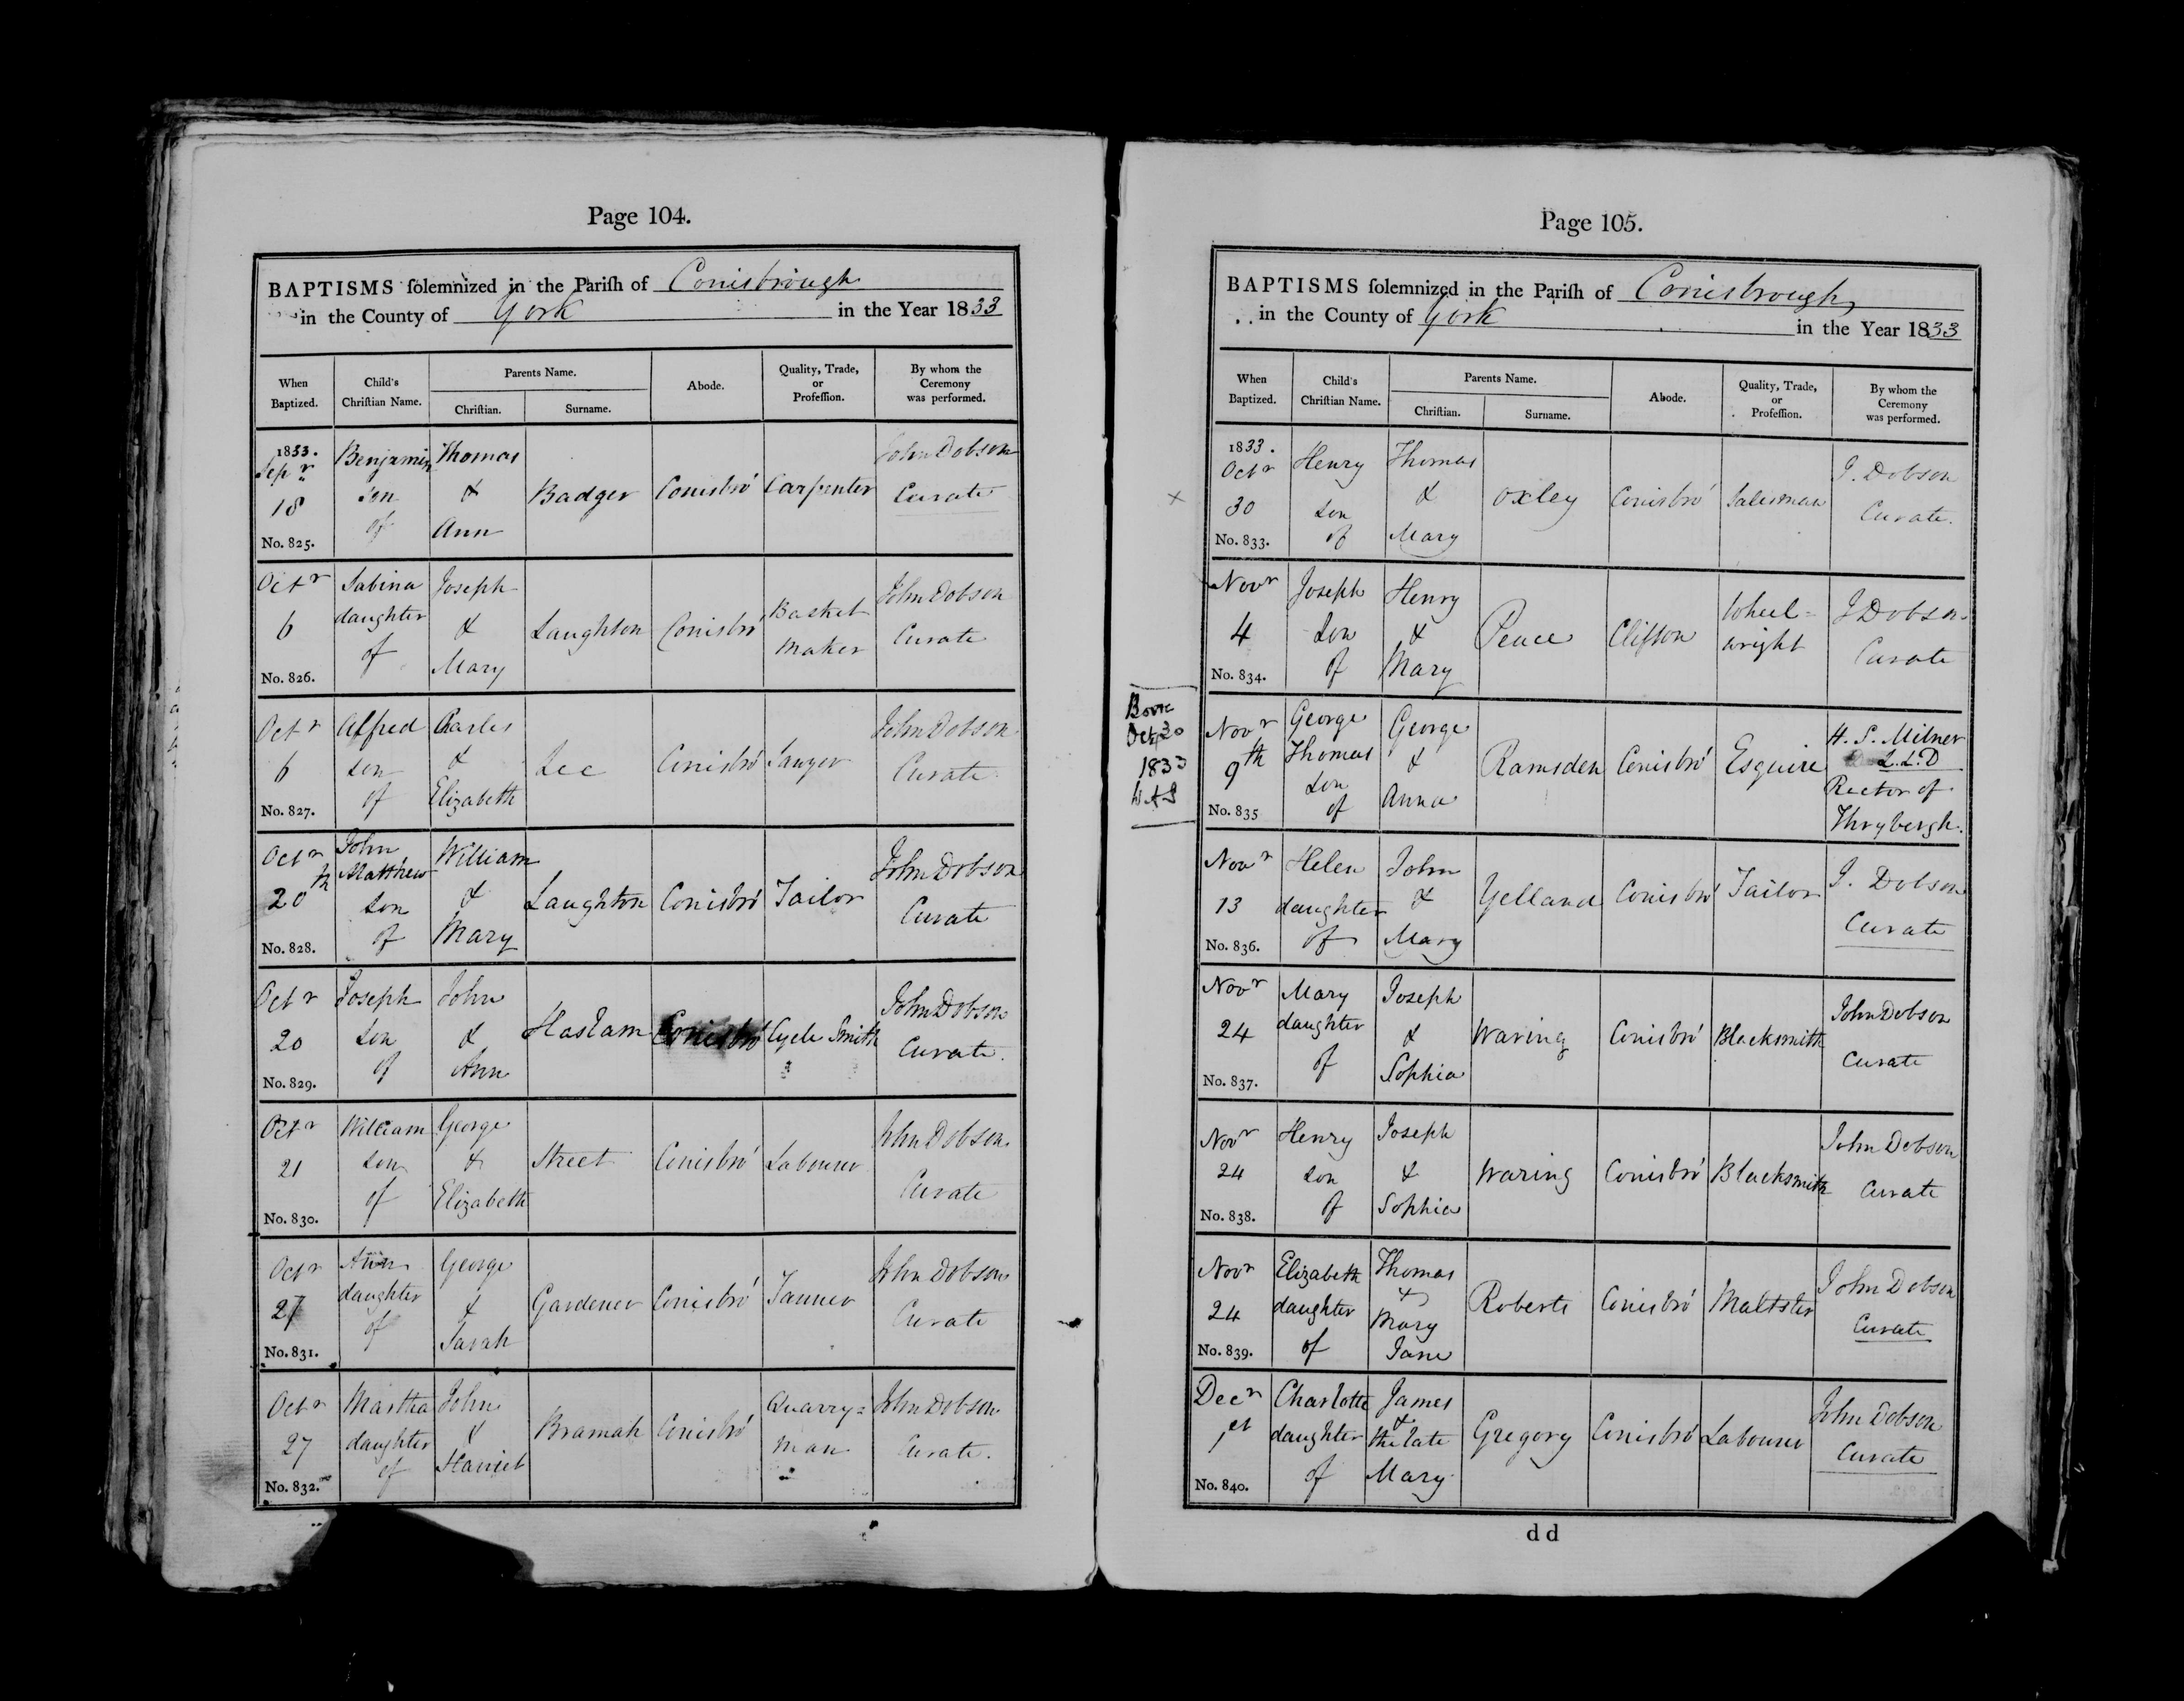 Page 104.
BAPTISMS solemnized in the Parish of Conisbrough
in the County of York in the Year 1833
When Baptized. Child's Christian Name. Parents Name. Christian. Surname. Abode. Quality, Trade, or Profession. By whom the Ceremony was performed.
1833. Sepr 18 No. 825. Benjamin son of Thomas & Ann Badger Conisbro' Carpenter John Dobson Curate
Octr 6 No. 826. Sabina daughter of Joseph & Mary Laughton Conisbro' Basket maker John Dobson Curate
Octr 6 No. 827. Alfred son of Charles & Elizabeth Lee Conisbro' Sawyer John Dobson Curate
Octr 20th No. 828. John Matthew son of William & Mary Laughton Conisbro' Tailor John Dobson Curate
Octr 20 No. 829. Joseph son of John & Ann Haslam Conisbro' Smith John Dobson Curate.
Octr 21 No. 830. William son of George & Elizabeth Street Conisbro' Labourer John Dobson. Curate
Octr 27 No. 831. Ann daughter of George & Sarah Gardener Conisbro' Tanner John Dobson Curate
Octr 27 No. 832. Martha daughter of John & Harriet Bramah Conisbro' Quarry= man John Dobson Curate.
Page 105.
BAPTISMS solemnized in the Parish of Conisbrough
in the County of York in the Year 1833
When Baptized. Child's Christian Name. Parents Name. Christian. Surname. Abode. Quality, Trade, or Profession. By whom the Ceremony was performed.
1833. Octr 30 No. 833. Henry son of Thomas & Mary Oxley Conisbro' Salesman J. Dobson Curate.
Novr 4 No. 834. Joseph Son of Henry & Mary Peace Clifton Wheel= wright J Dobson. Curate
Born Oct 30 1833
Novr 9th No. 835 George Thomas son of George & Anna Ramsden Conisbro' Esquire H. S. Milner L.L.D Rector of Thrybergh.
Novr 13 No. 836. Helen daughter of John & Mary Yelland Conisbro' Tailor J. Dobson Curate
Novr 24 No. 837. Mary daughter of Joseph & Sophia Waring Conisbro' Blacksmith John Dobson Curate
Novr 24 No. 838. Henry son of Joseph & Sophia Waring Conisbro' Blacksmith John Dobson Curate
Novr 24 No. 839. Elizabeth daughter of Thomas & Mary Jane Roberts Conisbro' Maltster John Dobson Curate
Decr 1st No. 840. Charlotte daughter of James & the late Mary Gregory Conisbro' Labourer John Dobson Curate
d d